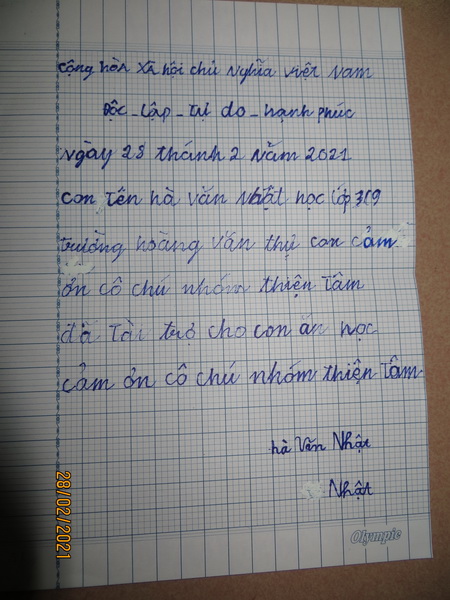 cộng hòa xã hội chủ nghĩa việt nam
Độc_Lập_Tự do_hạnh phúc
ngày 28 thánh 2 năm 2021
con tên hà văn nhật học lớp 319
trường hoàng văn thụ con cảm
ơn cô chú nhóm thiện tâm
đã tài trợ cho con ăn học
cảm ơn cô chú nhóm thiện tâm
hà văn Nhật
Nhật
Olympic
28/02/2021